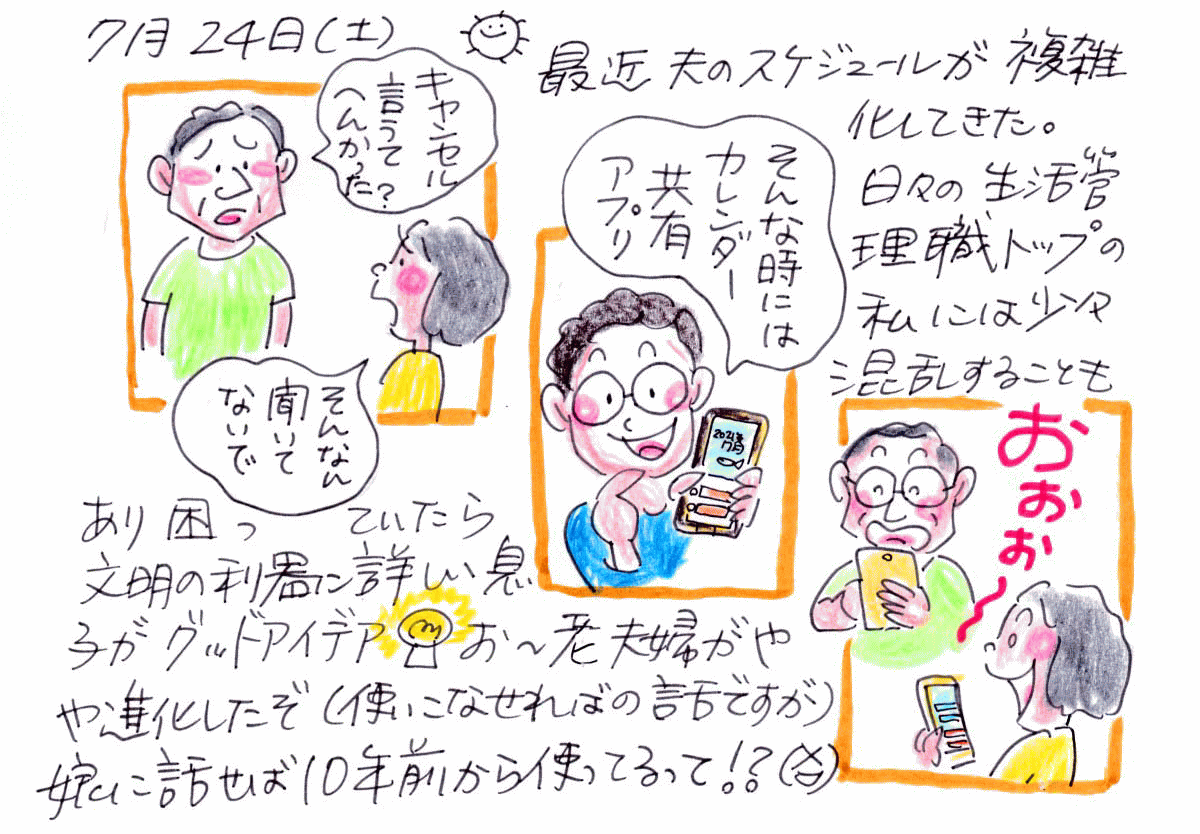 7月24日(土)
最近夫のスケジュールが複雑
化してきた。
日々の生活管
理職トップの
私には少々
混乱することも
キャンセル
言うて
へんかった?
そんなん
聞いて
ないで
そんな時には
カレンダー
共有
アプリ
2021年
7月
おおぉ~
あり困っていたら
文明の利器に詳しい息
子がグッドアイデア お~老夫婦がや
や進化したぞ(使いこなせればの話ですが)
娘に話せば10年前から使ってるって!?